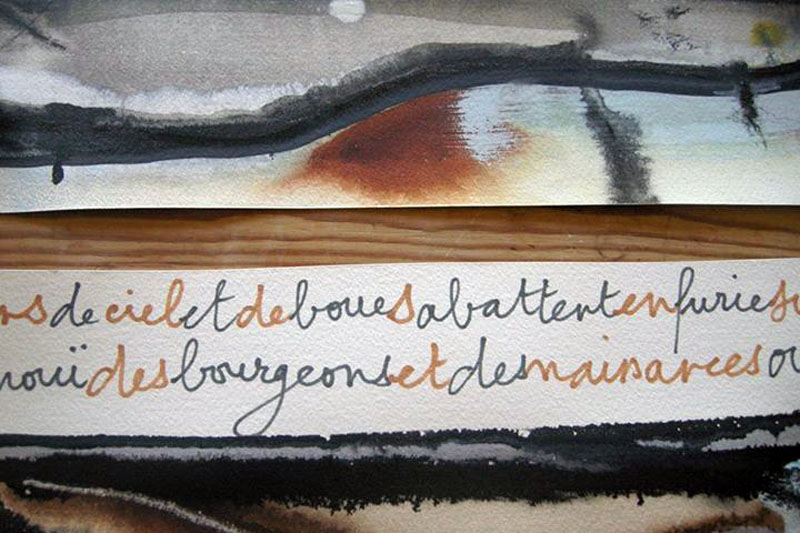 de ciel et de boue s abattent en furie su
nouï des bourgeons et des naissances